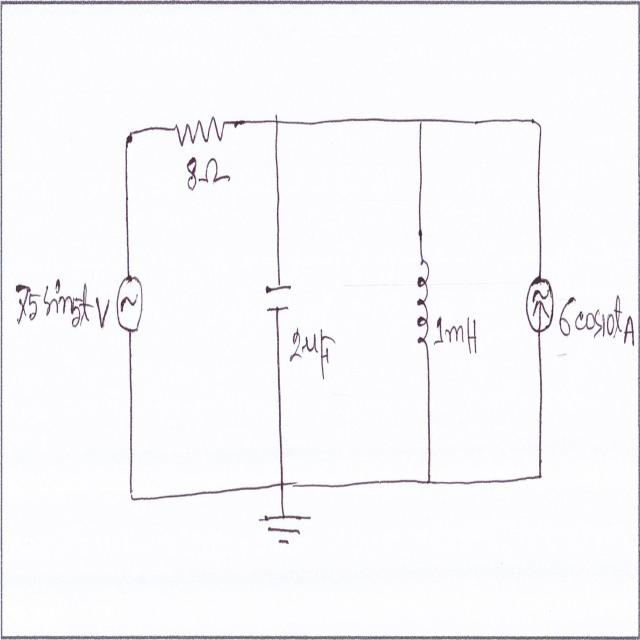 8Ω
75 sin5t V
2μF
1mH
6cos10t A